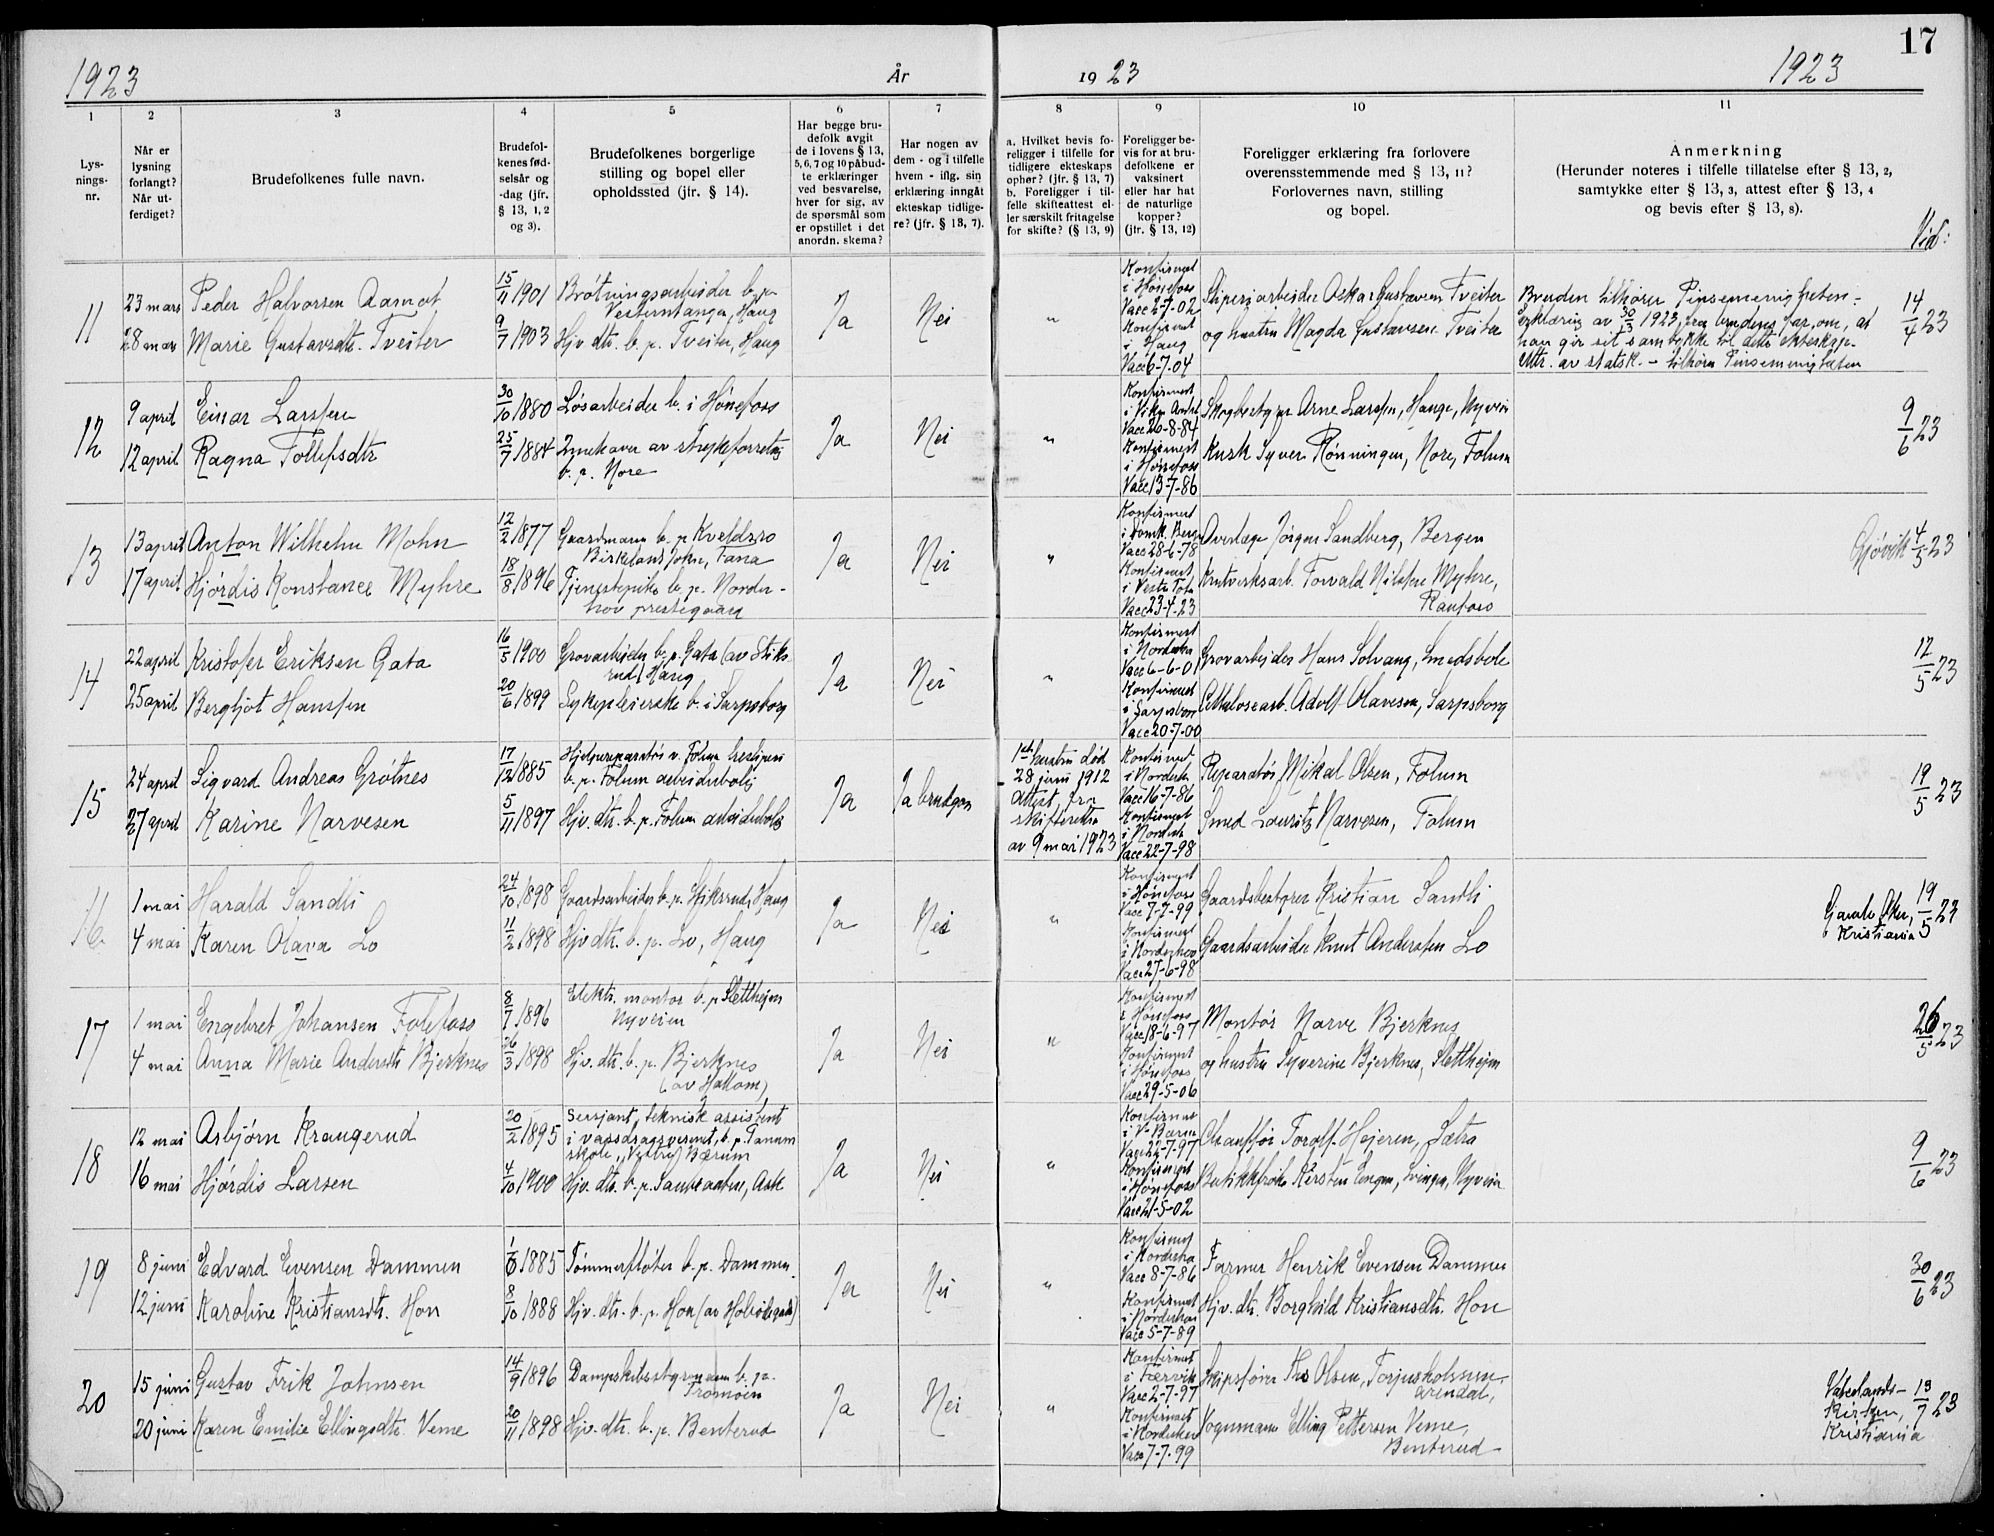 17
1923
År
19 23
1923
1
2
3
4
5
6
7
8
9
10
11
Lys-
nings-
nr.
Når er
lysning
forlangt?
Når ut-
ferdiget?
Brudefolkenes fulle navn.
Brudefol-
kenes fød-
selsår og
-dag (jfr.
§ 13, 1, 2
og 3).
Brudefolkenes borgerlige
stilling og bopel eller
opholdssted (jfr. § 14).
Har begge bru-
defolk avgit
de i lovens § 13,
5, 6, 7 og 10 påbud-
te erklæringer
ved besvarelse,
hver for sig, av
de spørsmål som
er opstillet i det
anordn. skema?
Har nogen av
dem - og i tilfelle
hvem - iflg. sin
erklæring inngått
ekteskap tidlige-
re? (jfr. § 13, 7).
a. Hvilket bevis fo-
religger i tilfelle for
tidligere ekteskaps
ophør? (jfr. § 13, 7)
b. Foreligger i til-
felle skifteattest el-
ler særskilt fritagelse
for skifte? (§ 13, 9)
Foreligger be-
vis for at bru-
defolkene er
vaksinert
eller har hat
de naturlige
kopper?
(jfr. § 13, 12)
Foreligger erklæring fra forlovere
overensstemmende med § 13, 11?
Forlovernes navn, stilling
og bopel.
Anmerkning
(Herunder noteres i tilfelle tillatelse efter § 13, 2,
samtykke efter § 13, 3, attest efter § 13, 4
og bevis efter § 13, 8).
Vid:
11
23 mars
28 mars
Peder Halvorsen Aamot
Marie Gustavsdtr. Tveiter
15/11 1901
9/7 1903
Brøtningsarbeider b. p.
Vesterntangen, Haug
Hjv. dtr. b. p. Tveiter, Haug
Ja
Nei
"
Konfirmert
i Hønefoss
Vacc 2-7-02
Konfirmert
i Haug
Vacc 6-7-04
Sliperiarbeider Oskar Gustavsen Tveiter
og hustru Magda Gustavsen Tveiter
Bruden tilhører Pinsemenigheten -
Erklæring av 30/3 1923 fra brudens far, om, at
han gir sit samtykke til dette ekteskap.
Uttr. av statsk. - tilhører Pinsemenigheten
14/4 23
12
9 april
12 april
Einar Larssen
Ragna Tollefsdtr
30/10 1880
25/7 1884
Løsarbeider b. i Hønefoss
Innehaver av strykeforretn.
b. p. Nore
Ja
Nei
"
Konfirmert
i Viker
Vacc 20-8-84
Konfirmert
i Hønefoss
Vacc 13-7-86
Skogbestyrer Arne Larssen, Hauge, Nyveien
Kusk Syver Rønningen, Nore, Folum
9/6 23
13
13 april
17 april
Anton Wilhelm Mohn
Hjørdis Konstance Myhre
12/2 1877
18/8 1896
Gaardmann b. p. Kveldsro
Birkeland sokn, Fana
Tjenestepike b. p. Norder-
hov prestegaard
Ja
Nei
"
Konfirmert
i Domk. Bergen
Vacc 28-6-78
Konfirmert
i Vestre Toten
Vacc 23-4-23
Overlæge Jørgen Sandberg, Bergen
Krutverksarb. Torvald Nilssen Myhre,
Raufoss
Gjøvik 4/5 23
14
22 april
25 april
Kristofer Eriksen Gata
Bergljot Hanssen
16/5 1900
20/6 1899
Grovarbeider b. p. Gata (av Stiks-
rud) Haug
Sykepleierske b. i Sarpsborg
Ja
Nei
"
Konfirmert
i Norderhov
Vacc 6-6-01
Konfirmert
i Sarpsborg
Vacc 20-7-00
Grovarbeider Hans Solvang, Smedsbole
Cellulosearb. Adolf Olavesen, Sarpsborg
12/5 23
15
24 april
27 april
Sigvard Andreas Grøtnes
Karine Narvesen
17/12 1885
5/11 1897
Hjelpereparatør v. Folum tresliperi
b. p. Folum arbeiderbolig
Hjv. dtr. b. p. Folum arbeiderbolig
Ja
Ja brudgom
1ste hustru død
28 juni 1912
Attest fra
skifteretten
av 9 mai 1923
Konfirmert
i Norderhov
Vacc 16-7-86
Konfirmert
i Norderh.
Vacc 22-7-98
Reparatør Mikal Olsen, Folum
Smed Lauritz Narvesen, Folum
19/5 23
16
1 mai
4 mai
Harald Sandli
Karen Olava Lo
24/10 1898
11/2 1898
Gaardsarbeider b. p. Stiksrud, Haug
Hjv. dtr. b. p. Lo, Haug
Ja
Nei
"
Konfirmert
i Hønefoss
Vacc 7-7-99
Konfirmert
i Norderhov
Vacc 27-6-98
Gaardsbestyrer Kristian Sandli
Gaardsarbeider Knut Anderssen Lo
Gamle Aker,
Kristiania
19/5 23
17
1 mai
4 mai
Engebret Johansen Folefoss
Anna Marie Andersdtr. Bjerknes
8/7 1896
26/3 1898
Elektr. montør b. p. Slettheim
Nyveien
Hjv. dtr. b. p. Bjerknes
(av Hallom)
Ja
Nei
"
Konfirmert
i Hønefoss
Vacc 18-6-97
Konfirmert
i Hønefoss
Vacc 29-5-06
Montør Narve Bjerknes
og hustru Syverine Bjerknes, Slettheim
26/5 23
18
12 mai
16 mai
Asbjørn Kraugerud
Hjørdis Larsen
20/2 1895
4/10 1900
Sersjant, teknisk assistent
i vassdragsvesenet, b. p. Tanum
skole, Vestre Bærum
Hjv. dtr. b. p. Sandbakken, Ask
Ja
Nei
"
Konfirmert
i V. Bærum
Vacc 22-7-97
Konfirmert
i Hønefoss
Vacc 21-5-02
Chauffør Toralf Hejeren, Sætra
Butikkfrøken Kersten Engen, Svingen, Nyveien
9/6 23
19
8 juni
12 juni
Edvard Evensen Dammen
Karoline Kristiansdtr. Hon
1885
8/10 1888
Tømmerfløter b. p. Dammen
Hjv. dtr. b. p. Hon
Ja
Nei
"
Konfirmert
i Norderhov
Vacc 8-7-86
Konfirmert
i Norderhov
Vacc 5-7-89
Farmer Henrik Evensen Dammen
Hjv. dtr. Borghild Kristiansdtr. Hon
30/6 23
20
15 juni
20 juni
Gustav Frik Johnsen
Karen Emilie Ellingsdtr. Veme
14/9 1896
20/11 1898
Dampskibsstyrmann b. p.
Tromøien
Hjv. dtr. b. p. Benterud
Ja
Nei
"
Konfirmert
i Færvik
Vacc 2-7-97
Konfirmert
i Norderhov
Vacc 7-7-99
Skipsfører Ths Olsen, Torjusholmen,
Arendal,
Vognmann Elling Pettersen Veme,
Benterud
Vaterlands-
kirken,
Kristiania
13/7 23